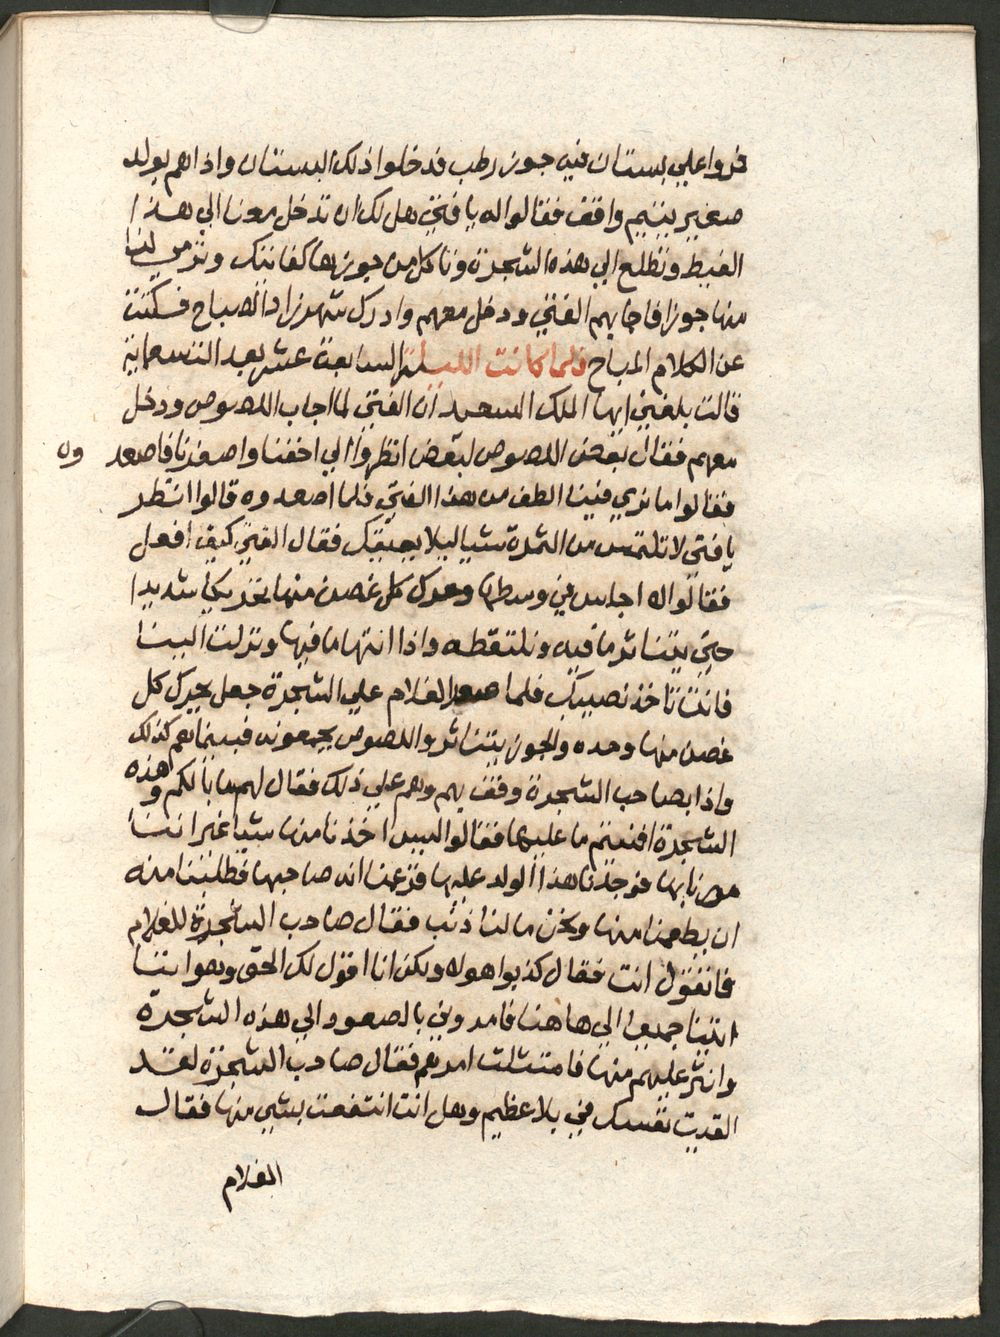 مروا علي بستان فيه جوز رطب فدخلوا ذلك البستان واذا هم بولد
صغير بينهم واقف فقالوا له يا فتي هل لك ان تدخل معنا الي هذا
الغيط وتطلع الي هذه الشجرة وتاكل من جوزها كفايتك وترمي لنا
منها جوزا فاجابهم الفتي ودخل معهم وادرك شهرزاد الصباح فسكتت
عن الكلام المباح فلما كانت الليلة السابعة عشر بعد التسعماية
قالت بلغني ايها الملك السعيد ان الفتي لما اجاب اللصوص ودخل
معهم فقال بعض اللصوص لبعض انظروا الي اخفنا واصغرنا فاصعد وه
فقالوا ما نري فينا الطف من هذا الفتي فلما اصعدوه قالوا انتظر
يا فتي لا تلتمس من الشجرة شيا ليلا يصيبك فقال الفتي كيف افعل
فقالوا له اجلس في وسطها وحرك كل غصن منها تحريكا شديدا
حتي يتناثر ما فيه ونلتقطه واذا انتها ما فيها ونزلت الينا
فانت تاخذ نصيبك فلما صعد الغلام علي الشجرة جعل يحرك كل
غصن منها وحده والجوز يتناثر واللصوص يجمعونه فبينما هم كذلك
واذا بصاحب الشجرة وقف بهم وهم علي ذلك فقال لهم ما بالكم وهذه
الشجرة افنيتم ما عليها فقالوا لسيد اخذنا منها شيا غير اننا
مرنا بها فوجدنا هذا الولد عليها فزعمنا انه صاحبها فطلبنا منه
ان يطعمنا منها ونحن ما لنا ذنب فقال صاحب الشجرة للغلام
فاتقول انت فقال كذبوا هولا ولكن انا اقول لك الحق وهو اننا
اتينا جميعا الي هاهنا فامروني بالصعود الي هذه الشجرة
وانثر عليهم منها فامتثلت امرهم فقال صاحب الشجرة لقد
القيت نفسك في بلا عظيم وهل انت انتفعت بشي منها فقال
الغلام